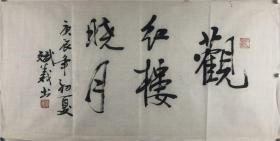 觀
红樓
曉月
庚辰年初夏
斌義书